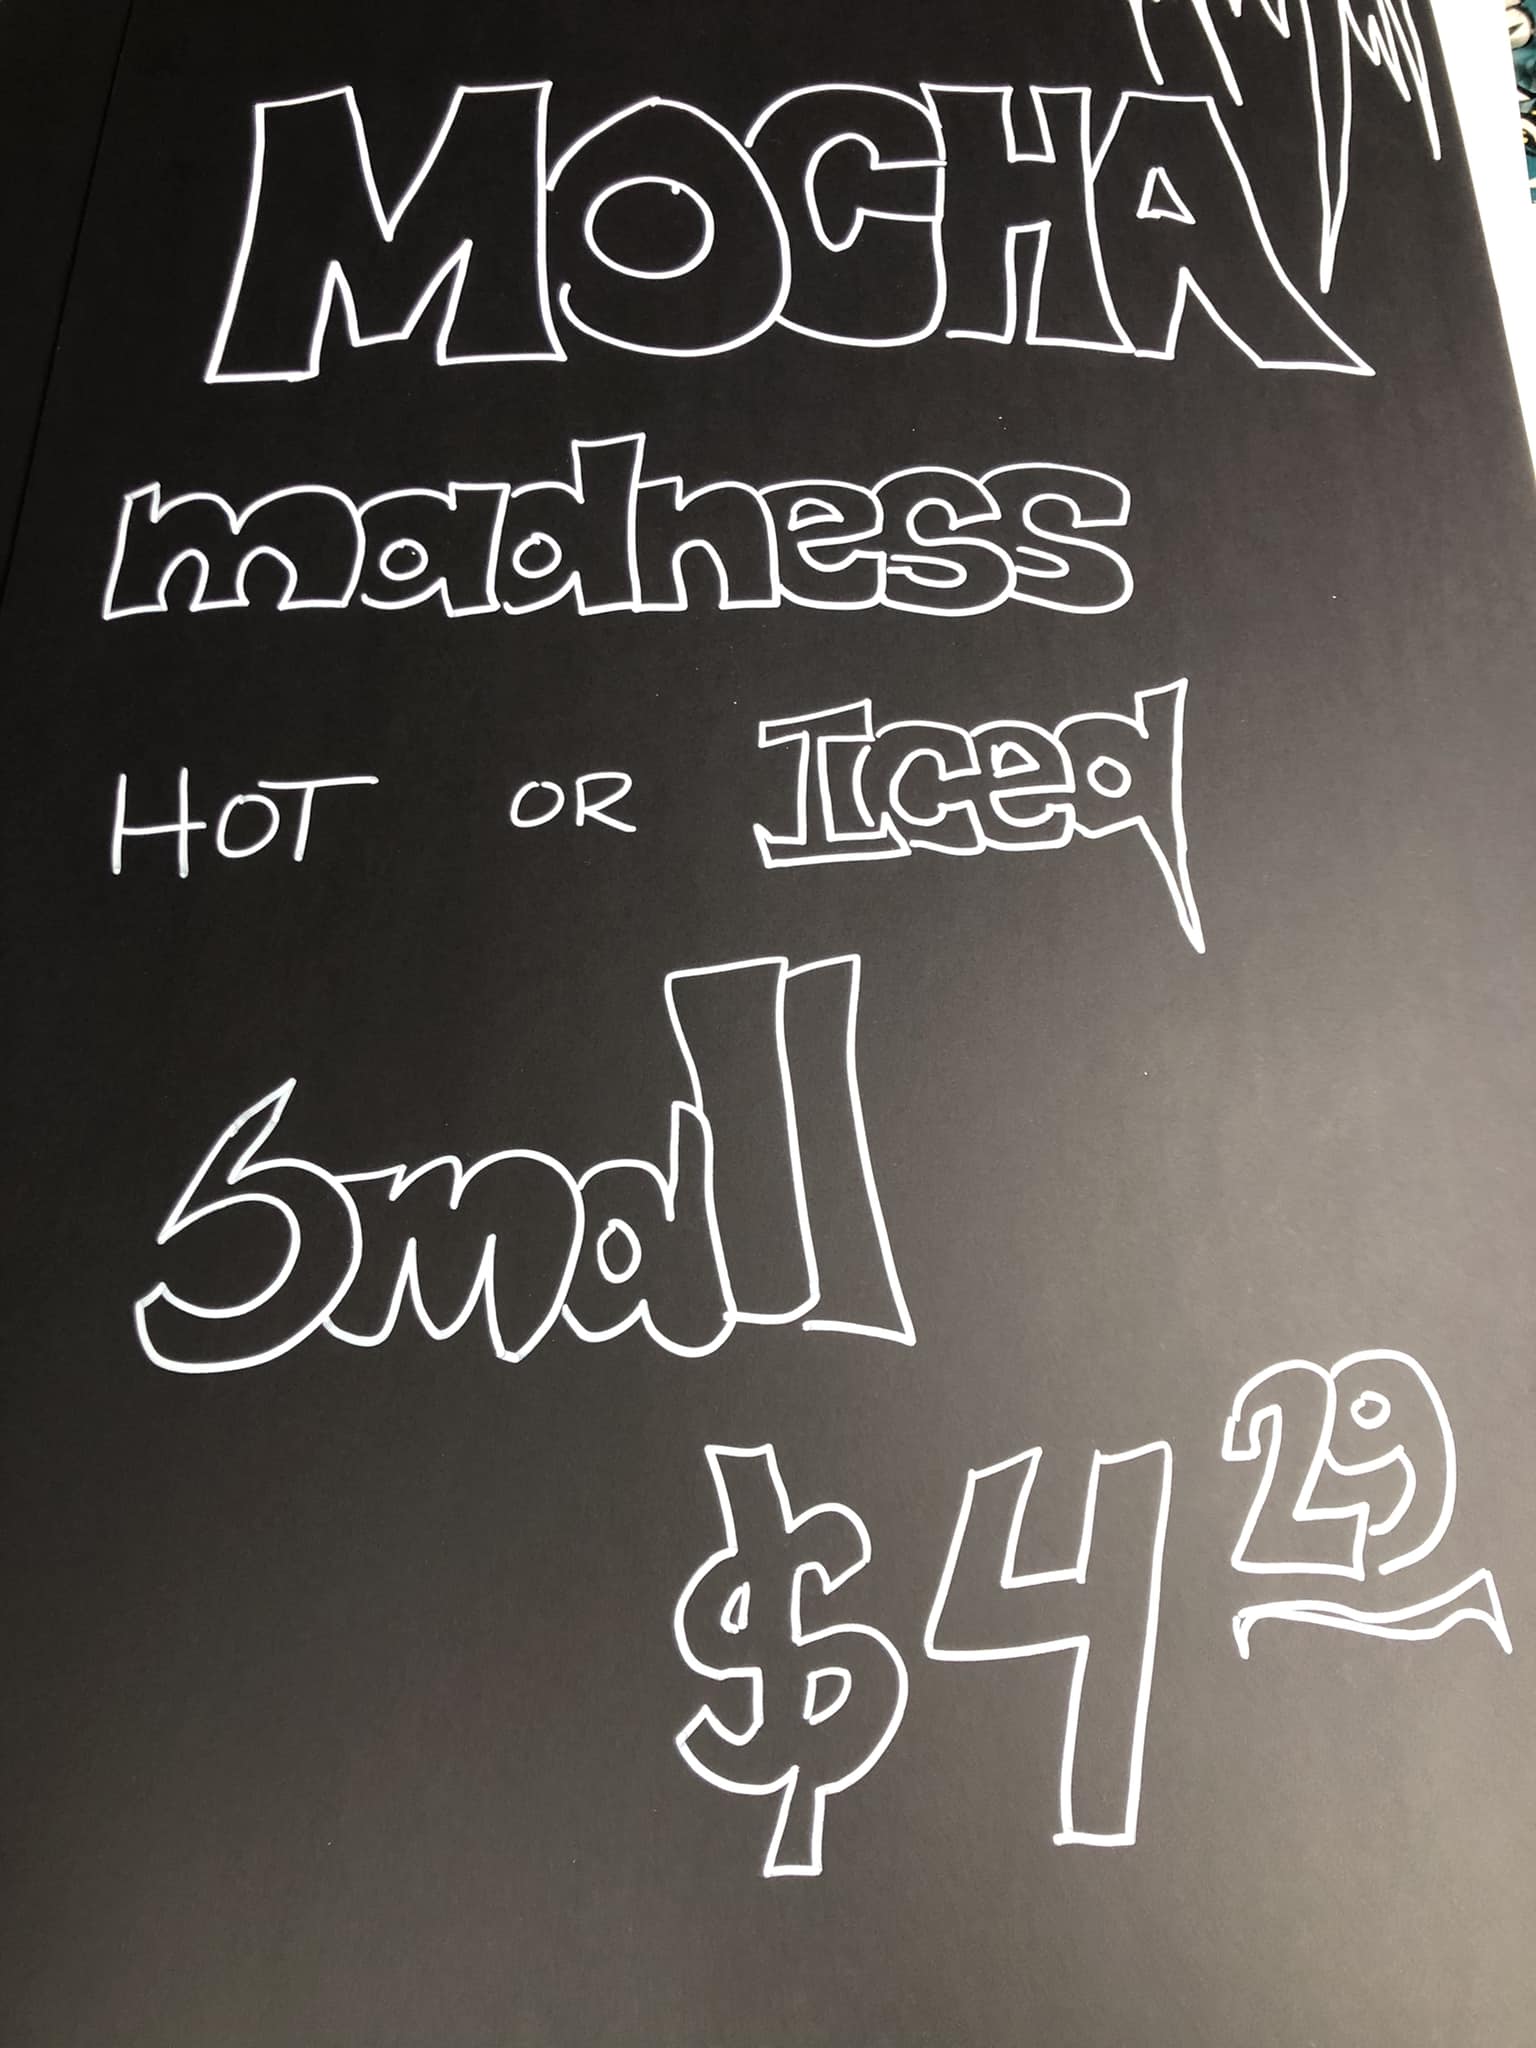 MOCHA
madness
HOT OR Iced
Small
$4 29